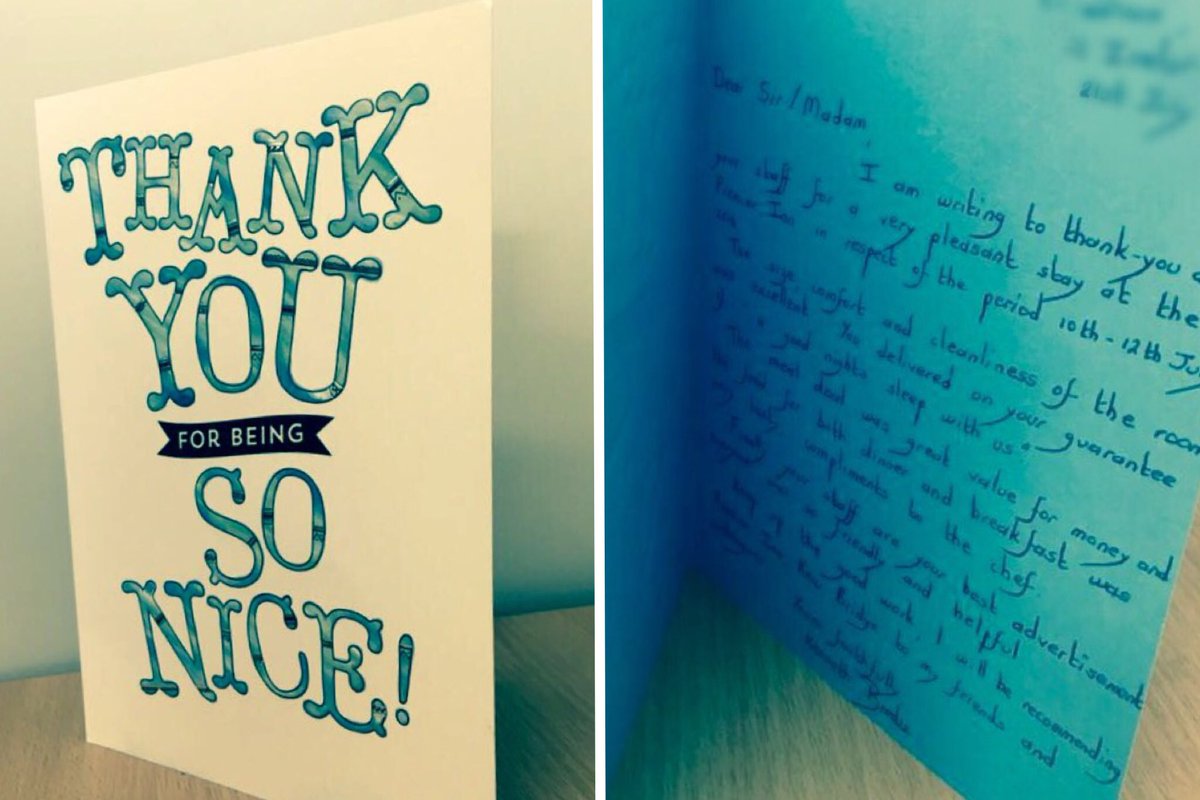 THANK
YOU
FOR BEING
SO
NICE!
Dear Sir/Madam,
I am writing to thank-you
your staff for a very pleasant stay at the
Premier Inn in respect of the period 10th - 12th
The size comfort and cleanliness of the room
was excellent. You delivered on your guarantee
of a good nights sleep with us.
The meal deal was great value for money and
the food for both dinner and breakfast was
compliments to the chef.
your staff are your best advertisement
so friendly and helpful
Keep up the good work. I will be recommending
to my friends and
Yours faithfully